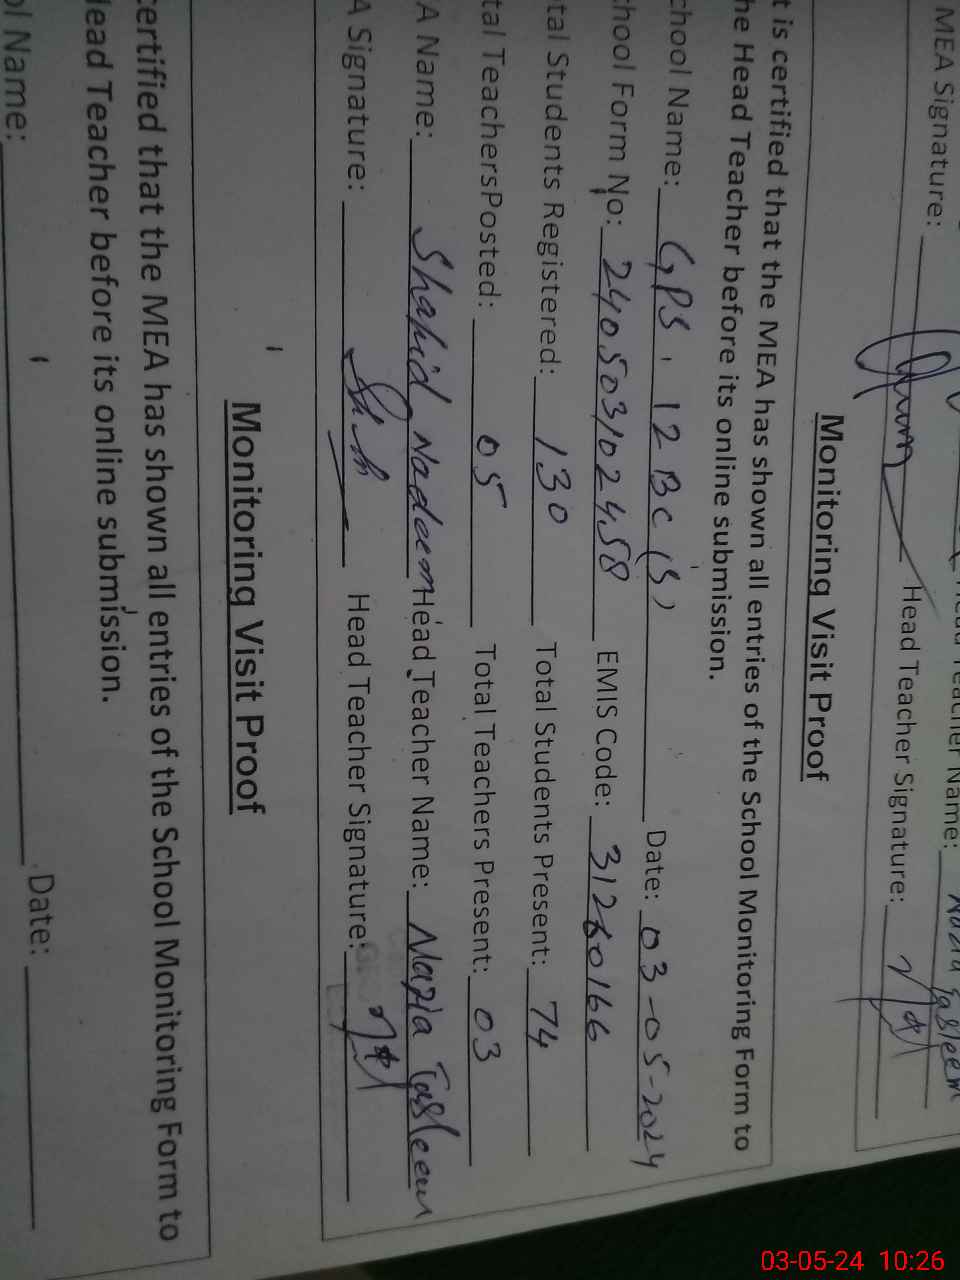 MEA Signature: Head Teacher Name: Nazia Tasleem
Head Teacher Signature:
Monitoring Visit Proof
t is certified that the MEA has shown all entries of the School Monitoring Form to
he Head Teacher before its online submission.
chool Name: GPS, 12 BC (S) Date: 03-05-2024
chool Form No: 240503102458 EMIS Code: 31260166
tal Students Registered: 130 Total Students Present: 74
tal TeachersPosted: 05 Total Teachers Present: 03
A Name: Shahid Nadeem Head Teacher Name: Nazia Tasleem
A Signature: Head Teacher Signature:
Monitoring Visit Proof
certified that the MEA has shown all entries of the School Monitoring Form to
Head Teacher before its online submission.
ol Name: Date:
03-05-24 10:26